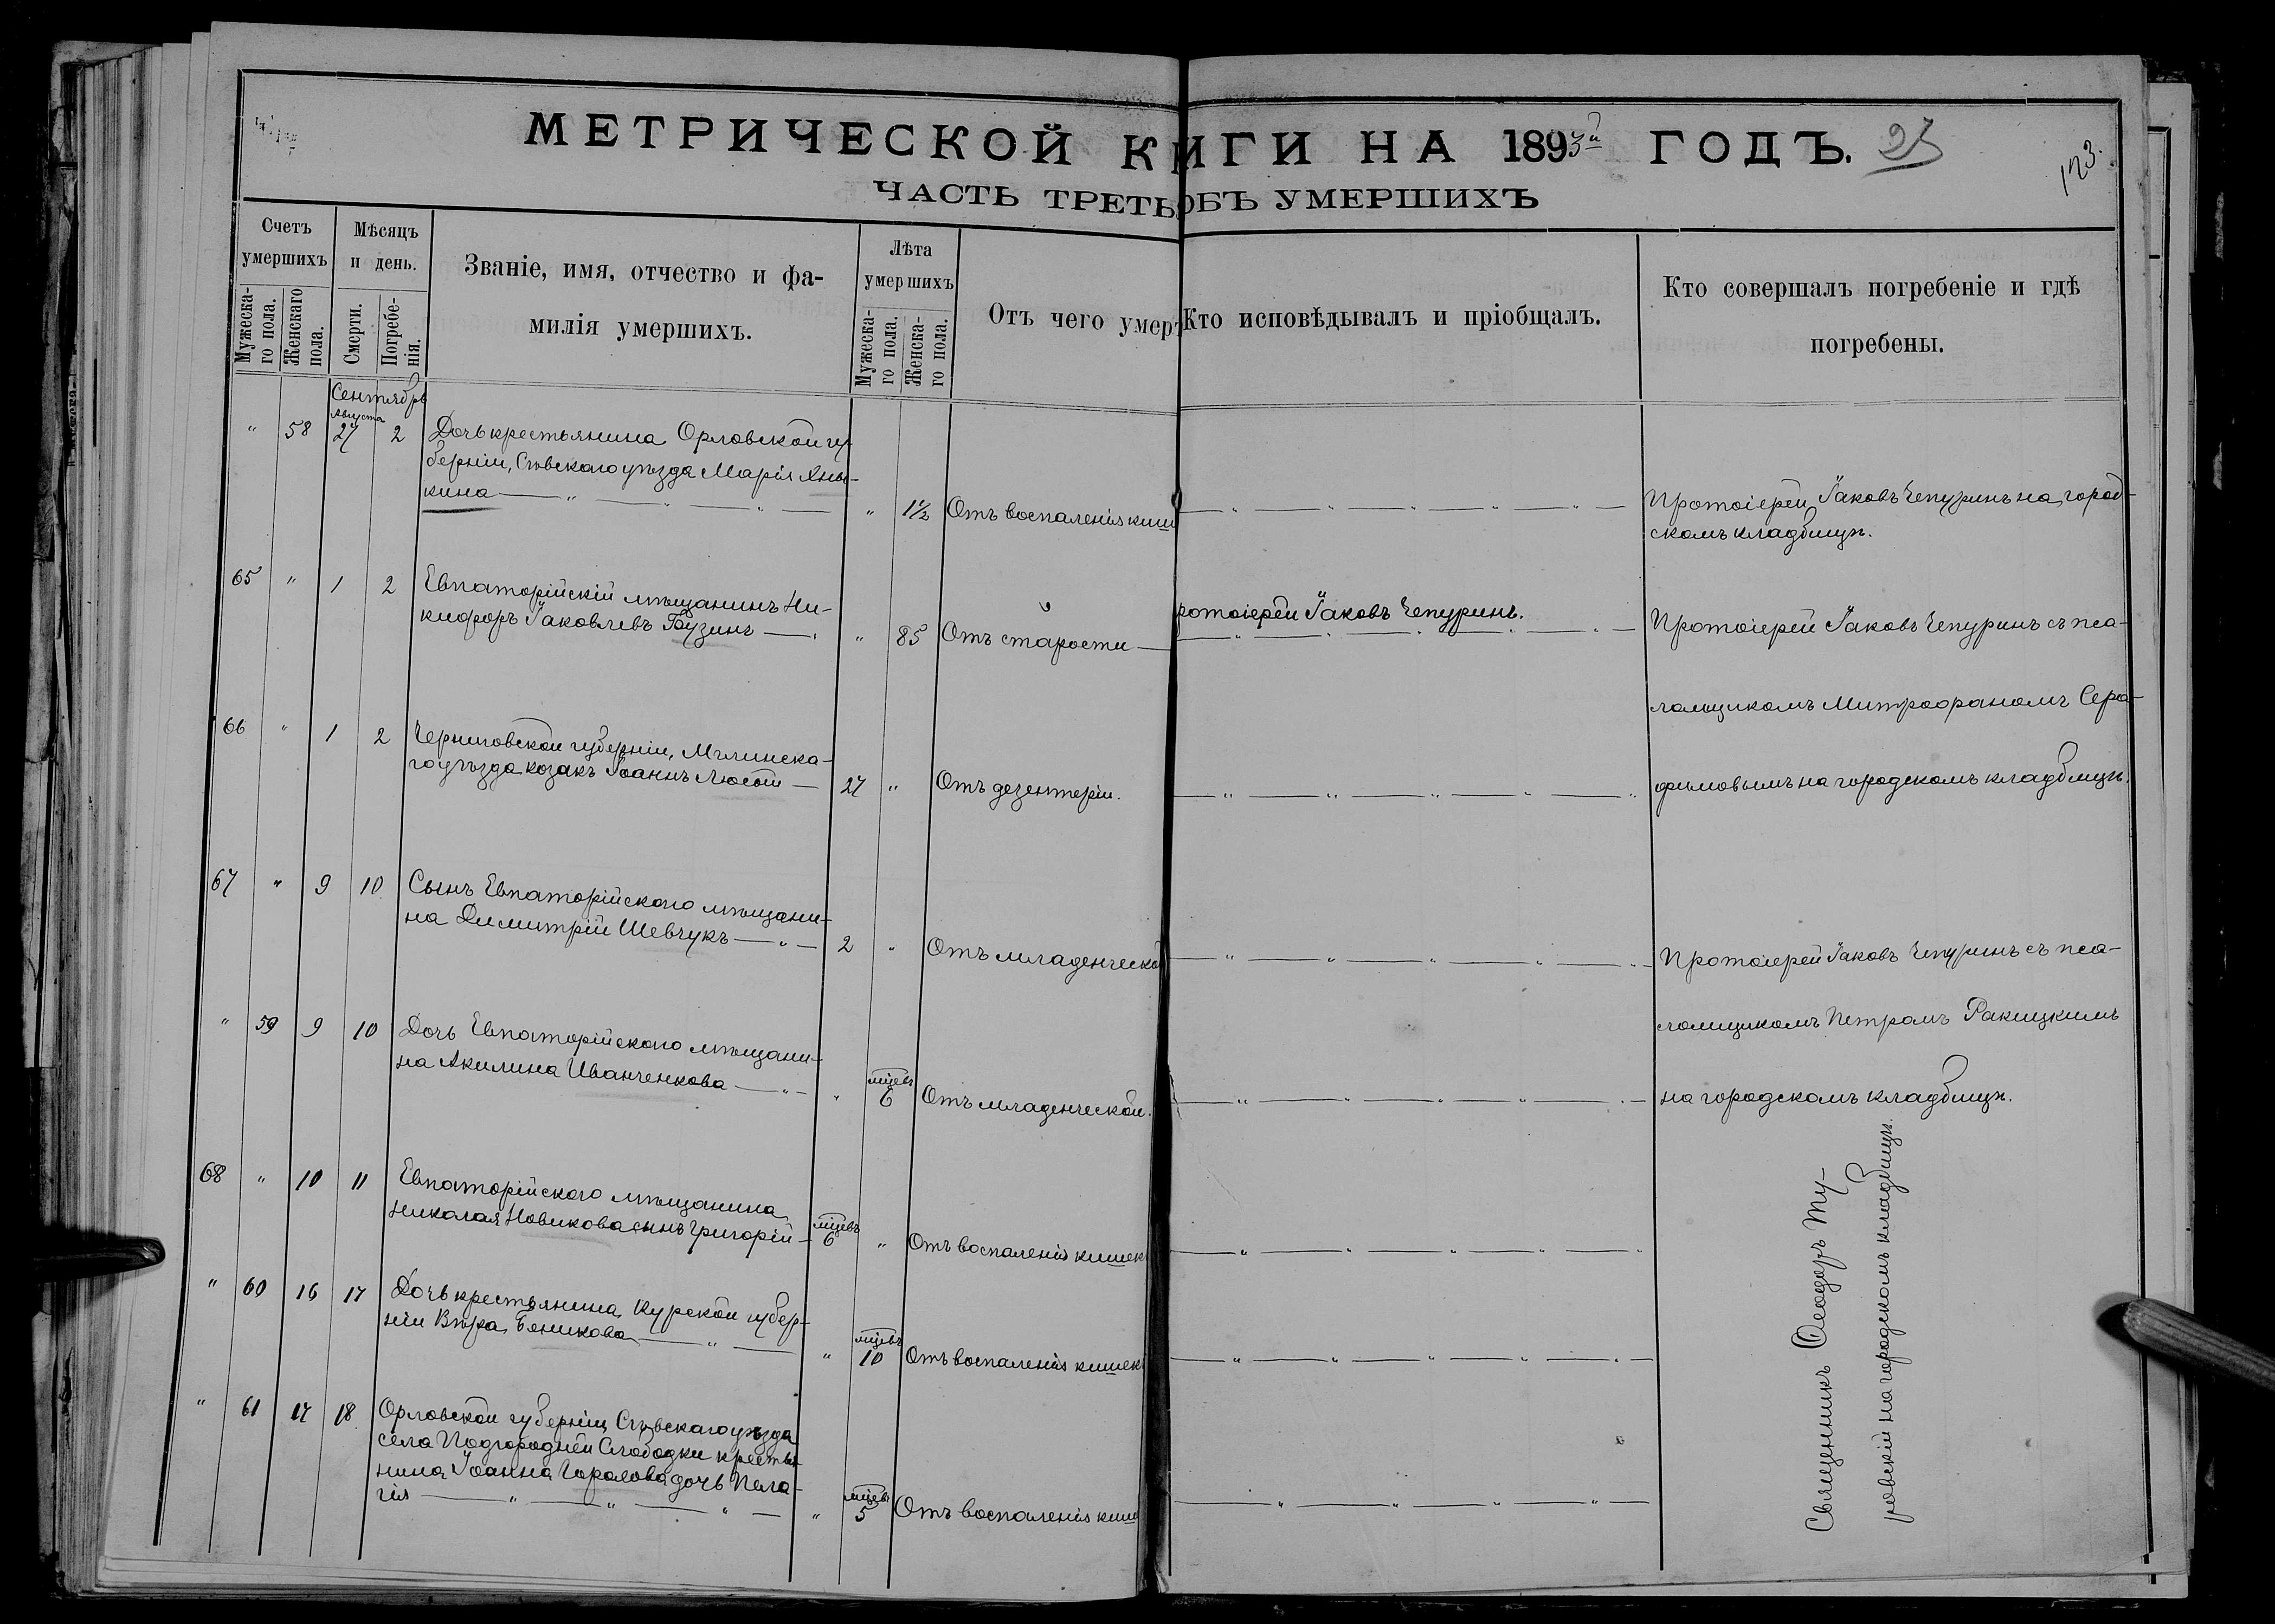 МЕТРИЧЕСКОЙ КНИГИ НА 1893й ГОДЪ.
123.
ЧАСТЬ ТРЕТЬ ОБЪ УМЕРШИХЪ
Счетъ умершихъ
Мужеска-го пола.
Женскаго пола.
Мѣсяцъ и день.
Смерти.
Погребе-нія.
Званіе, имя, отчество и фа-
милія умершихъ.
Лѣта умершихъ
Мужеска-го пола.
Женска-го пола.
Отъ чего умер
Кто исповѣдывалъ и пріобщалъ.
Кто совершалъ погребеніе и гдѣ
погребены.
Сентябрь
Августа
" 58 27 2 Дочь крестьянина Орловской гу-
берніи, Сѣвскаго уѣзда Марія
кина " 1½ Отъ воспаленія киш
Протоіерей Іаковъ Чепуринъ на город-
скомъ кладбищѣ.
65 " 1 2 Евпаторійскій мѣщанинъ Ни-
кифоръ Іаковлевъ " 85 Отъ старости
ротоіерей Іаковъ Чепуринъ.
Протоіерей Іаковъ Чепуринъ съ пса-
ломщикомъ Митрофаномъ Сера-
фимовымъ на городскомъ кладбищѣ.
66 " 1 2 Черниговской губерніи, Мглинска-
го уѣзда козакъ Іоаннъ Лютый 27 " Отъ дезентеріи.
67 " 9 10 Сынъ Евпаторійского мѣщани-
на Димитрій Шевчукъ 2 " Отъ младенческо
Протоіерей Іаковъ Чепуринъ съ пса-
ломщикомъ Петромъ Ракицкимъ
на городскомъ кладбищѣ.
" 59 9 10 Дочь Евпаторійского мѣщани-
на Акилина Иванченкова " мцевъ 6 Отъ младенческой.
68 " 10 11 Евпаторійского мѣщанина
Николая Новикова сынъ Григорій мцевъ 6 " Отъ воспаленія кишек
" 60 16 17 Дочь крестьянина Курской губер-
ніи Вѣра " мцевъ 10 Отъ воспаленія кишек
" 61 17 18 Орловской губерніи, Сѣвскаго уѣзда
села Подгородней Слободки крестья-
нина Іоанна дочь Пела-
гія " мцевъ 5 Отъ воспаленія киш
Священникъ Ѳеодоръ Ту-
ровскій на городскомъ кладбищѣ.